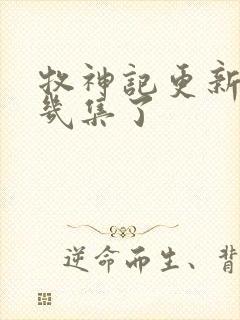 牧神記更新
幾集了
逆命而生、背